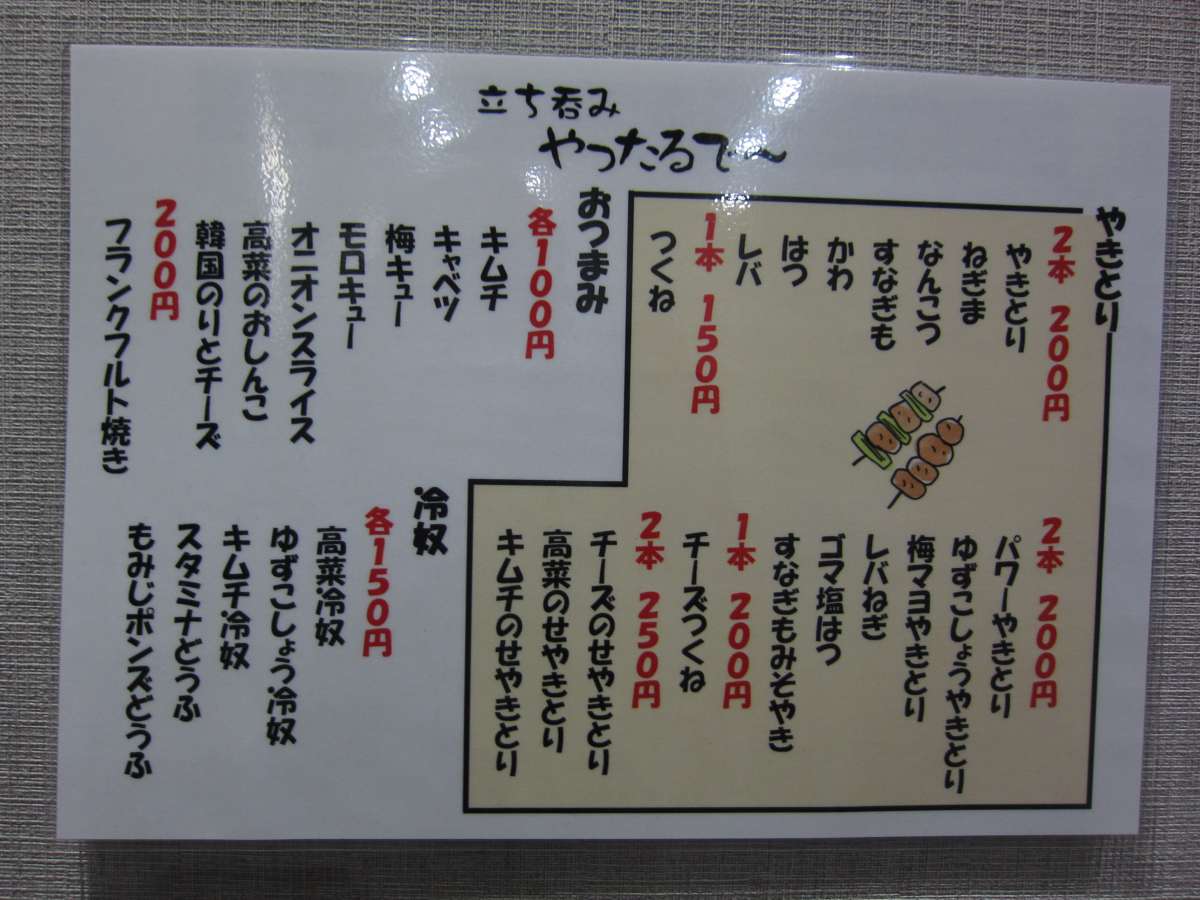 立ち呑み
やったるで～
やきとり
2本 200円
やきとり
ねぎま
なんこつ
すなぎも
かわ
はつ
レバ
1本 150円
つくね
2本 200円
パワーやきとり
ゆずこしょうやきとり
梅マヨやきとり
レバねぎ
ゴマ塩はつ
すなぎもみそやき
1本 200円
チーズつくね
2本 250円
チーズのせやきとり
高菜のせやきとり
キムチのせやきとり
おつまみ
各100円
キムチ
キャベツ
梅キュー
モロキュー
オニオンスライス
高菜のおしんこ
韓国のりとチーズ
200円
フランクフルト焼き
冷奴
各150円
高菜冷奴
ゆずこしょう冷奴
キムチ冷奴
スタミナどうふ
もみじポンズどうふ